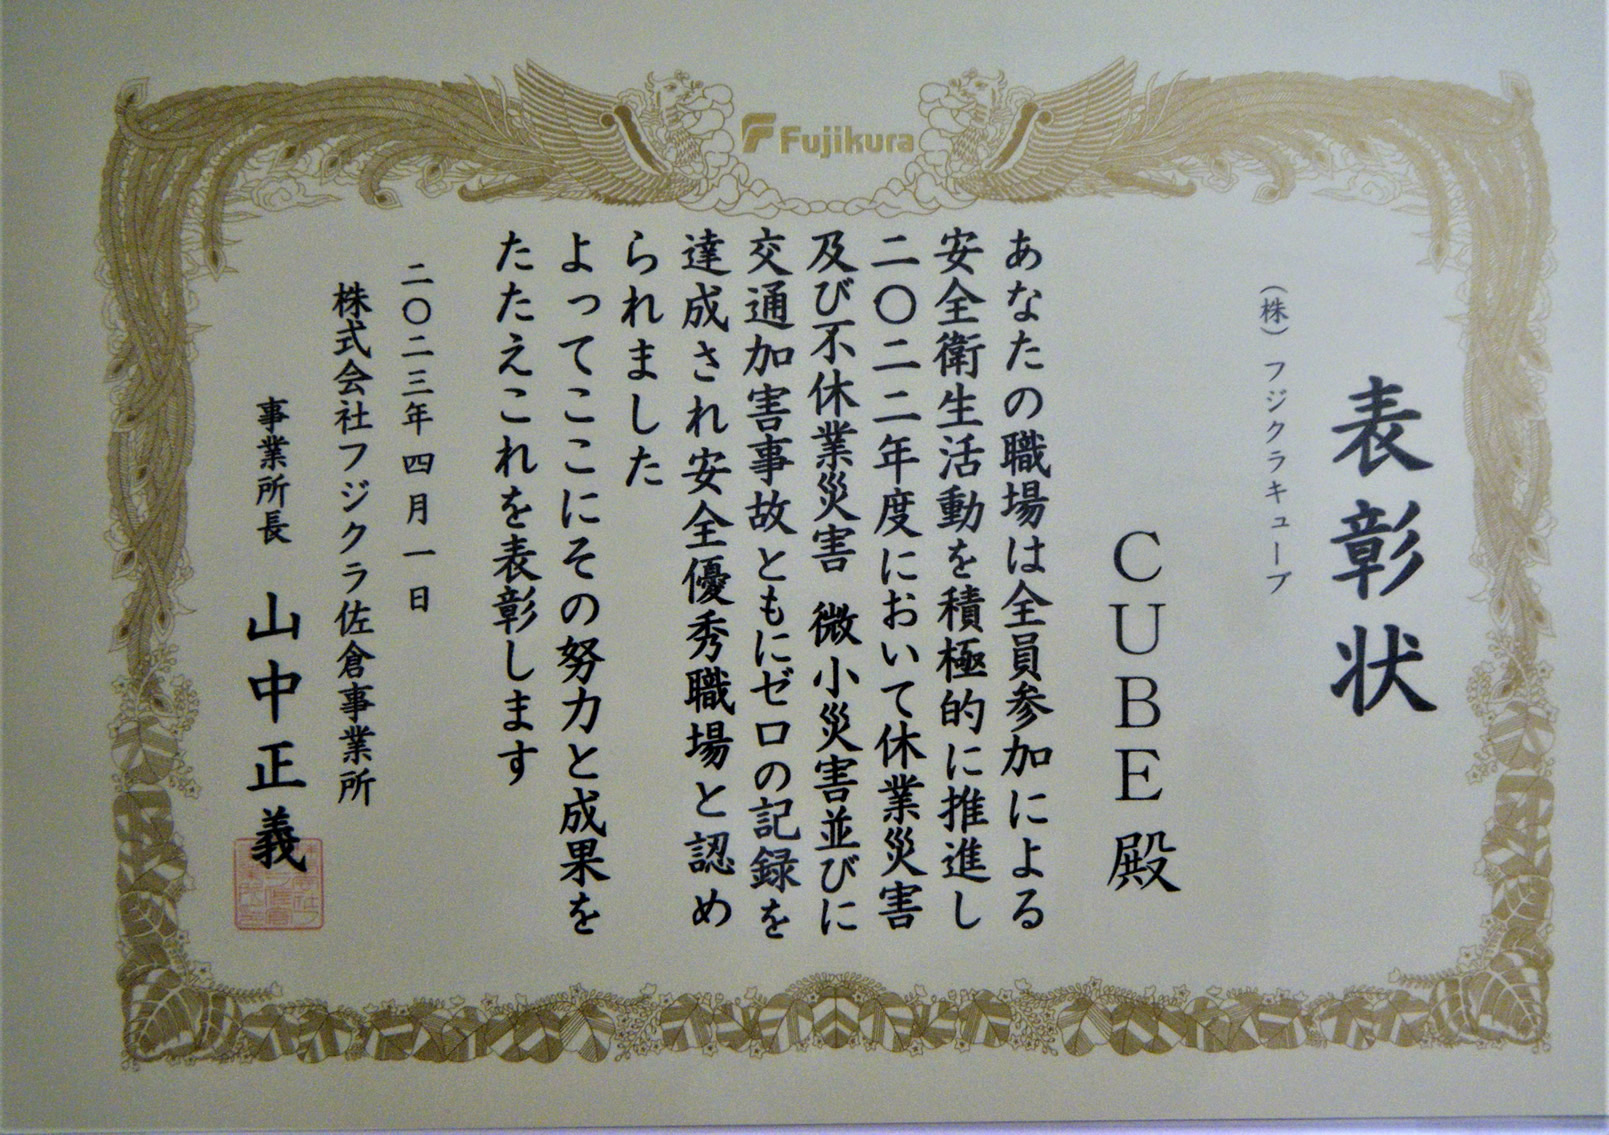 Fujikura
表彰状
（株）フジクラキューブ
CUBE殿
あなたの職場は全員参加による
安全衛生活動を積極的に推進し
二〇二二年度において休業災害
及び不休業災害 微小災害並びに
交通加害事故ともにゼロの記録を
達成され安全優秀職場と認め
られました
よってここにその努力と成果を
たたえこれを表彰します
二〇二三年四月一日
株式会社フジクラ佐倉事業所
事業所長 山中正義